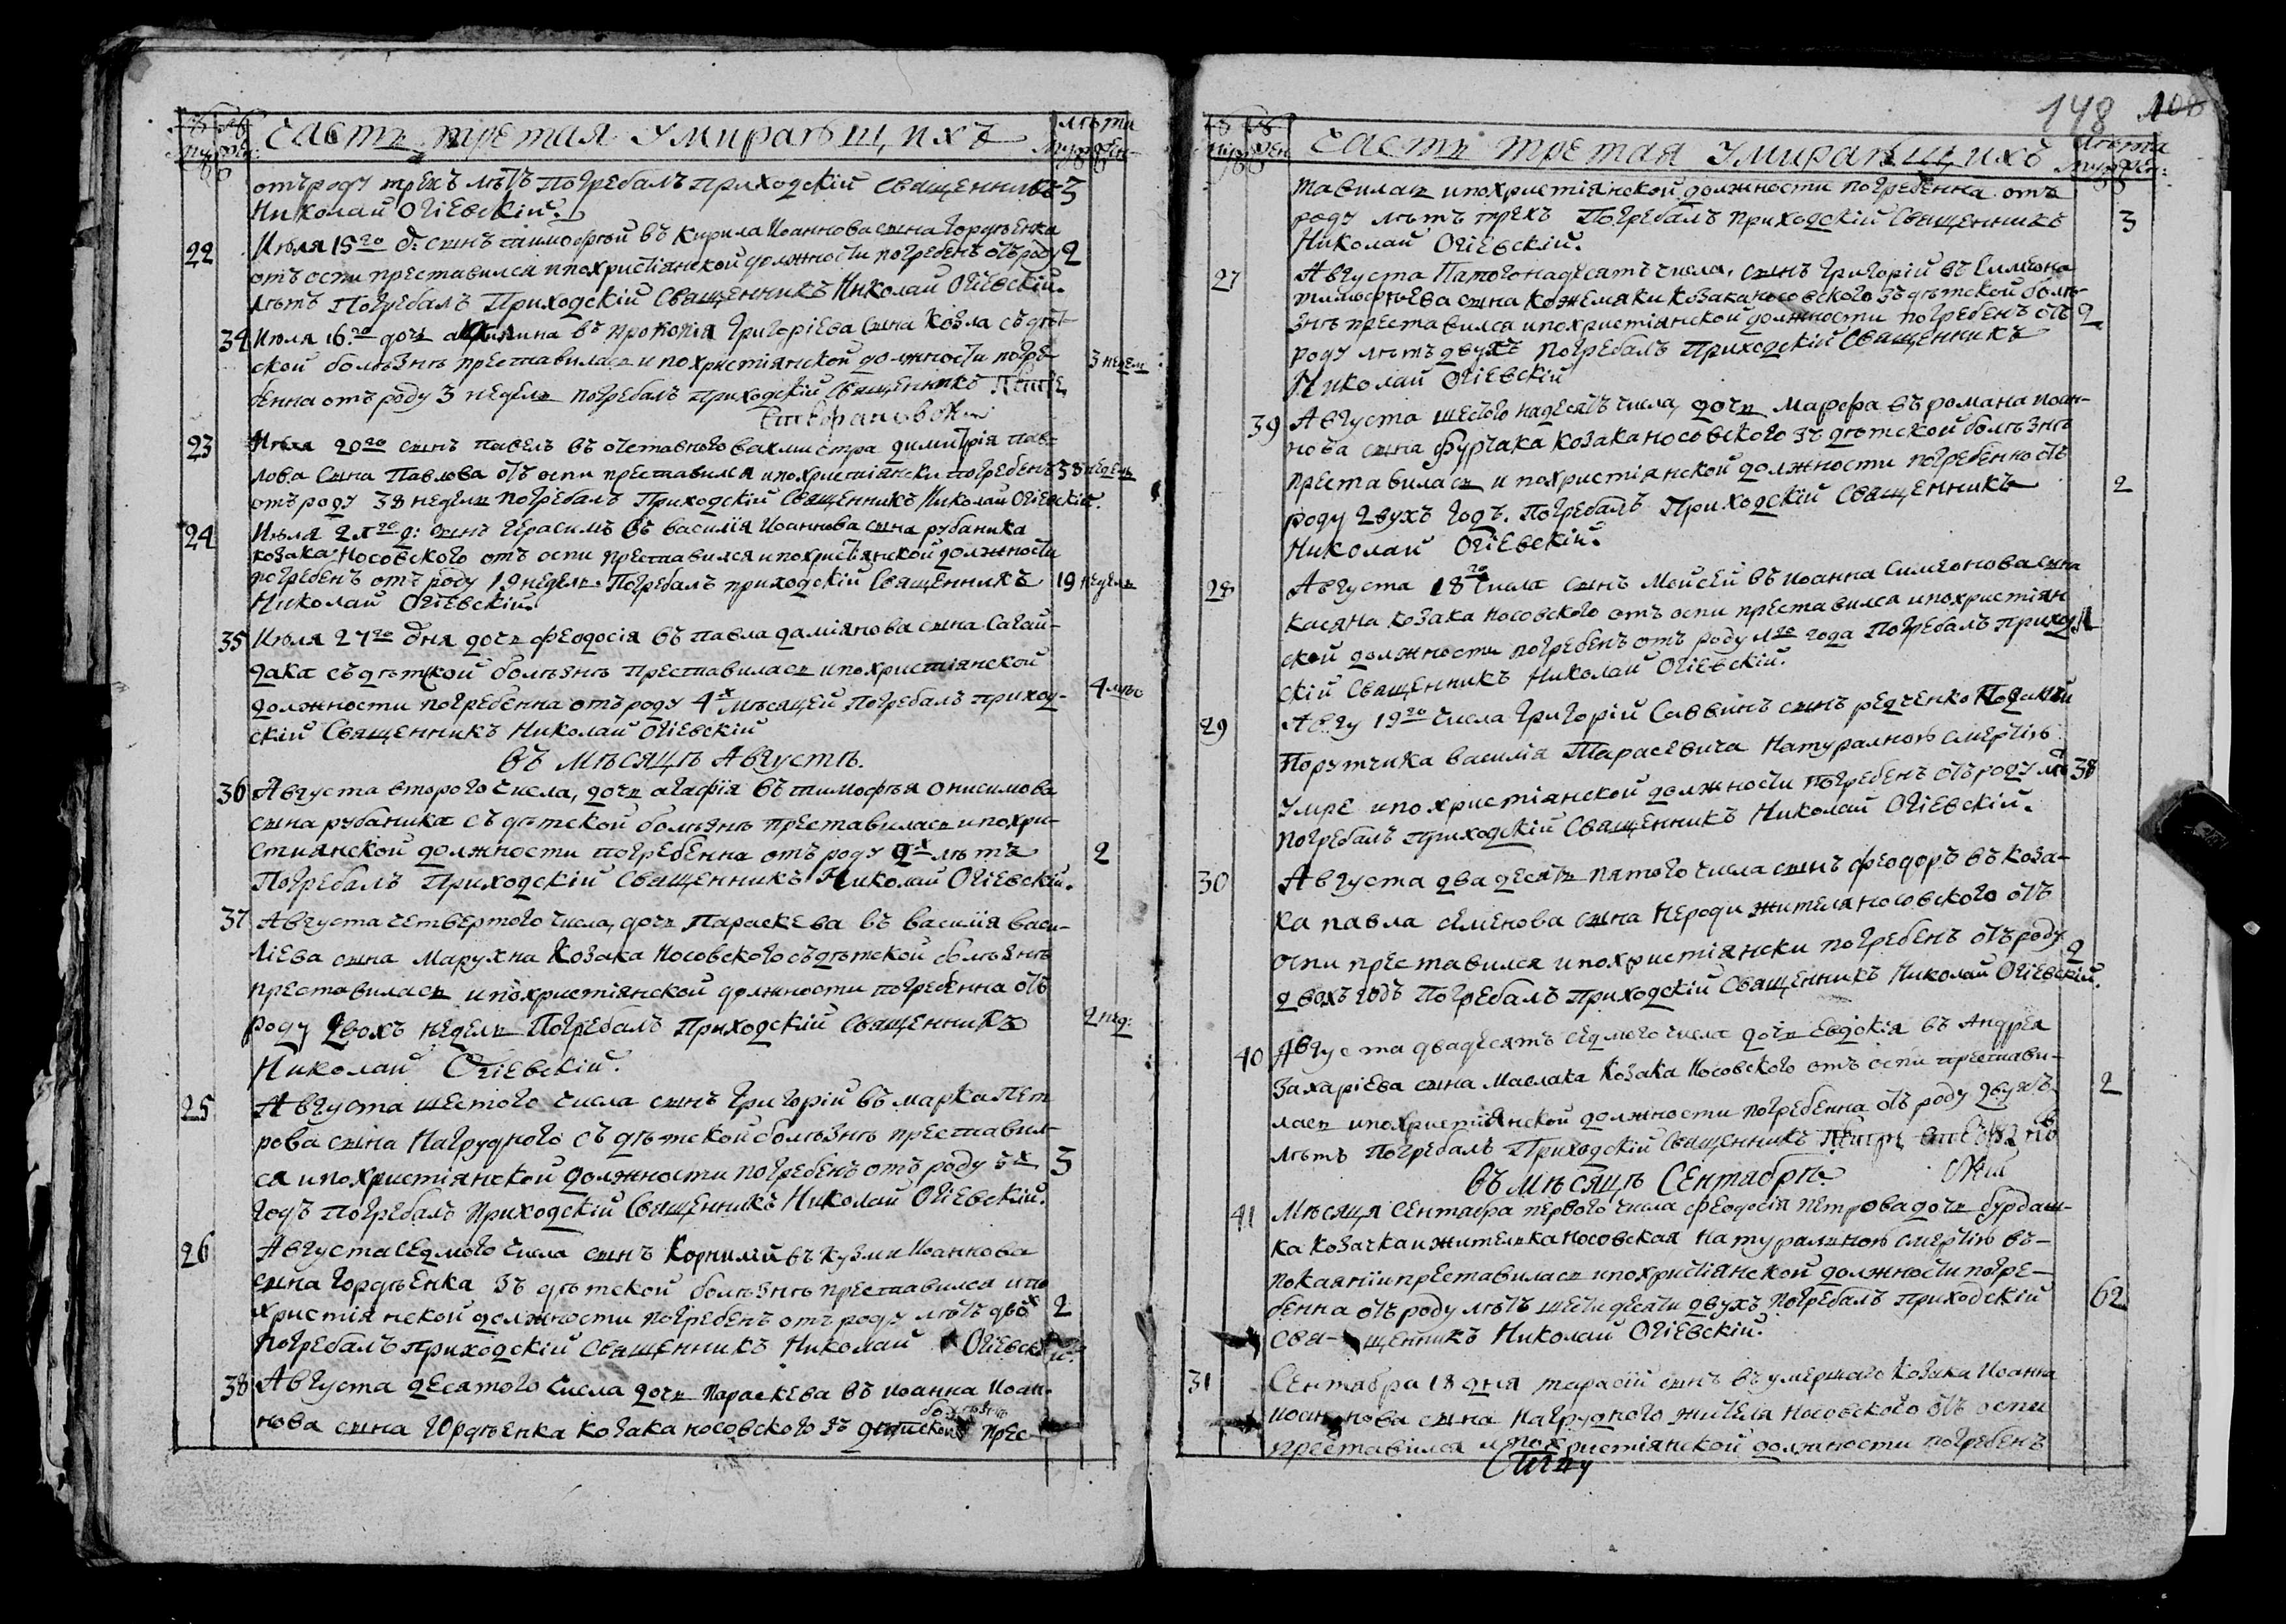 Часть третая умирающихъ
Лѣта
отъ роду трехъ лѣтъ погребалъ приходскій священникъ 3
Николай Огіевскій.
22 Июля 15го д: сынъ тимофѣй въ Кирила Иоаннова сына Гордѣенка
отъ оспи преставился и похристіянской должности погребенъ отъ роду 2
лѣтъ Погребалъ Приходскій Священникъ Николай Огіевскій.
34 Июля 16го дочь акилина въ Прокопія Григоріева сына Козла съ дѣт-
ской болѣзнѣ преставилась и похристіянской должности погре- 3 недел:
бенна отъ роду 3 недѣль погребалъ приходскій Священникъ
Стефановскій
23 Июля 20го сынъ павелъ въ отставного вахмистра димитрія пав-
лова сына Павлова отъ оспи преставился и похристіянски погребенъ 38 недель
отъ роду 38 недель погребалъ Приходскій Священникъ Николай Огіевскій.
24 Июля д: сынъ Герасимъ въ василія Иоаннова сына рубаника
козака Носовского отъ оспи преставился и похристіянской должности
погребенъ отъ роду 19 недель. Погребалъ приходскій Священникъ 19 недель
Николай Огіевскій.
35 Июля 27го дня дочь феодосія въ павла даміянова сына Сагай-
дака съ дѣтской болѣзнѣ преставилась и похристіянской
должности погребенна отъ роду 4х мѣсяцей погребалъ приход- 4 мѣс
скій Священникъ Николай Огіевскій
въ мѣсяцѣ Августѣ.
36 Августа второго числа, дочь агафія въ тимофѣя онисимова
сына рубаника съ дѣтской болѣзнѣ преставилась и похри-
стиянской должности погребенна отъ роду 2х лѣтъ 2
Погребалъ Приходскій Священникъ Николай Огіевскій.
37 Августа четвертого числа, дочь Параскева въ василія васи-
ліева сына Марухна Козака Носовского съ дѣтской болѣзнѣ
преставилась и похристіянской должности погребенна отъ
роду двохъ недель Погребалъ Приходскій Священникъ 2 нед:
Николай Огіевскій.
25 Августа шестого числа сынъ Григорій въ марка Пет
рова сына Нагрудного съ дѣтской болѣзнѣ преставил-
ся и похристіянской должности погребенъ отъ роду 3х 3
годъ погребалъ Приходскій Священникъ Николай Огіевскій.
26 Августа седмого числа сынъ Корнилій въ Кузми Иоаннова
сына Гордѣенка зъ дѣтской болѣзнѣ преставился и по
христіянской должности погребенъ отъ роду лѣтъ двох 2
погребалъ приходскій Священникъ Николай Огіевскій.
38 Августа десятого числа дочь Параскева въ Иоанна Иоан-
нова сына Гордѣенка козака носовского зъ дѣтской болѣзнѣ прес-
148
Часть третая умирающихъ
Лѣта
тавилась и похристіянской должности погребенна отъ
роду лѣтъ трехъ Погребалъ Приходскій Священникъ 3
Николай Огіевскій.
27 Августа Патогонадесятъ числа, сынъ Григорій въ Симеона
тимофѣева сына Кожемяки Козака носовского зъ дѣтской болѣ-
знѣ преставился и похристіянской должности погребенъ отъ 2
роду лѣтъ двухъ погребалъ Приходскій Священникъ
Николай Огіевскій
39 Августа шестого надесятъ числа, дочь Марфа въ романа иоан-
нова сына Фурчака козака носовского зъ дѣтской болѣзнѣ
преставилась и похристіянской должности погребенно отъ
роду двухъ годъ. Погребалъ Приходскій Священникъ 2
Николай Огіевскій.
28 Августа 18го числа сынъ Мойсей въ Иоанна Симеонова сына
Касяна козака носовского отъ оспи преставился и похристіян
ской должности погребенъ отъ роду 1го года Погребалъ приход 1
скій Священникъ Николай Огіевскій.
29 Авгу 19го числа Григорій Саввинъ сынъ редченко Подданій
Порутчика василія Тарасевича Натуралною смертію
умре и похристіянской должности погребенъ отъ роду лѣ 38
погребалъ приходскій Священникъ Николай Огіевскій.
30 Августа двадесять пятого числа сынъ феодоръ въ коза-
ка павла семенова сына Нероди жителя носовского отъ
оспи преставился и похристіянски погребенъ отъ роду 2
двохъ годъ Погребалъ приходскій Священникъ Николай Огіевскій.
40 Августа двадесятъ седмого числа дочь Евдокія въ Андрея
Захаріева сына Маслака Козака Носовского отъ оспи престави-
лась и похристіянской должности погребенна отъ роду двухъ 2
лѣтъ погребалъ Приходскій Священникъ
въ мѣсяцѣ Сентабрѣ.
41 Мѣсяця Сентабра первого числа Феодосія Петрова дочь бурдаш-
ка козачка и жителька носовская натуралною смертію въ-
покаяніи преставилась и похристіянской должности погре-
бенна отъ роду лѣтъ шестидесяти двухъ погребалъ приходскій 62
Свя- щенникъ Николай Огіевскій.
31 Сентабра 18 дня тарасій сынъ въ умершаго козака Иоанна
Иоаннова сына Нагрудного жителя Носовского отъ оспи
преставился и похристіянской должности погребенъ